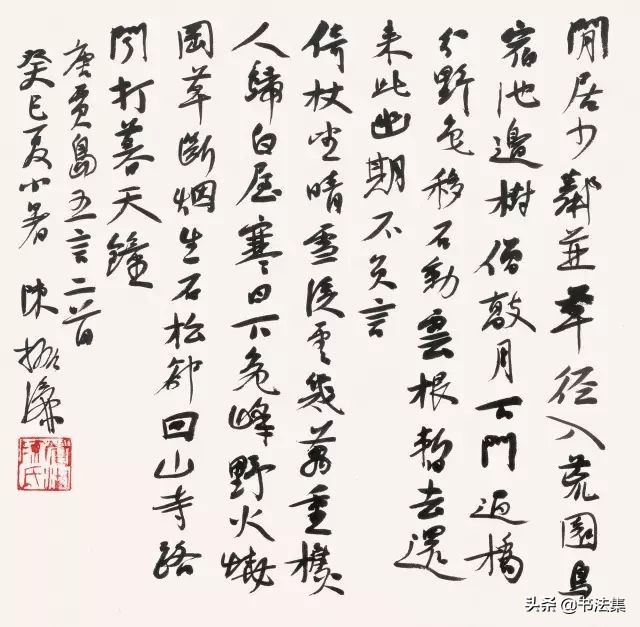 閒居少鄰並草徑入荒園鳥
宿池邊樹僧敲月下門過橋
分野色移石動雲根暫去還
来此幽期不负言
倚杖望晴雪溪雲幾萬重樵
人歸白屋寒日下危峰野火燒
岡草斷烟生石松卻回山寺路
聞打暮天鐘
唐賈島五言二首
癸巳夏小暑 陳振濂
头条 @书法集